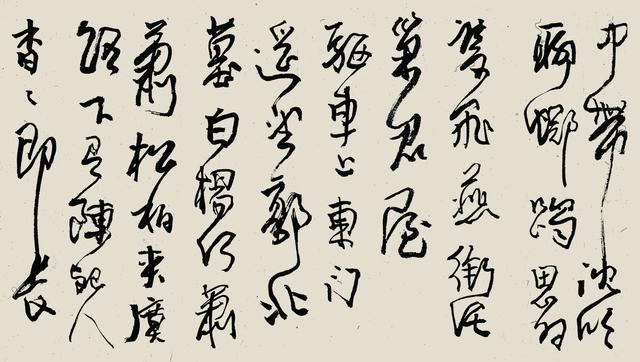 巾帶沈吟
聊躑躅思為
雙飛燕銜泥
巢君屋
驅車上東門
遙望郭北
墓白楊何蕭
蕭松柏夾廣
路下有陳死人
杳〻即長